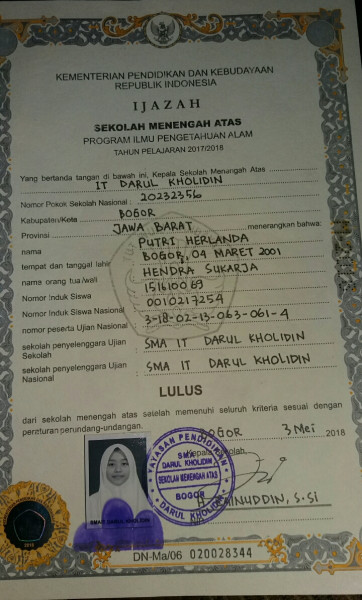 KEMENTERIAN PENDIDIKAN DAN KEBUDAYAAN
REPUBLIK INDONESIA
IJAZAH
SEKOLAH MENENGAH ATAS
PROGRAM ILMU PENGETAHUAN ALAM
TAHUN PELAJARAN 2017/2018
Yang bertanda tangan di bawah ini, Kepala Sekolah Menengah Atas
IT DARUL KHOLIDIN
Nomor Pokok Sekolah Nasional : 20232356
Kabupaten/Kota BOGOR
Provinsi JAWA BARAT menerangkan bahwa:
nama PUTRI HERLANDA
tempat dan tanggal lahir BOGOR, 04 MARET 2001
nama orang tua/wali HENDRA SUKARJA
Nomor Induk Siswa 151610069
Nomor Induk Siswa Nasional 0010217254
nomor peserta Ujian Nasional 3-18-02-13-063-061-4
sekolah penyelenggara Ujian Sekolah SMA IT DARUL KHOLIDIN
sekolah penyelenggara Ujian Nasional SMA IT DARUL KHOLIDIN
LULUS
dari sekolah menengah atas setelah memenuhi seluruh kriteria sesuai dengan
peraturan perundang-undangan.
BOGOR 3 Mei 2018
Kepala Sekolah
YAYASAN PENDIDIKAN
SMA
DARUL KHOLIDIN
SEKOLAH MENENGAH ATAS
BOGOR
DARUL KHOLIDIN
S.Si
NIP
DN-Ma/06 020028344